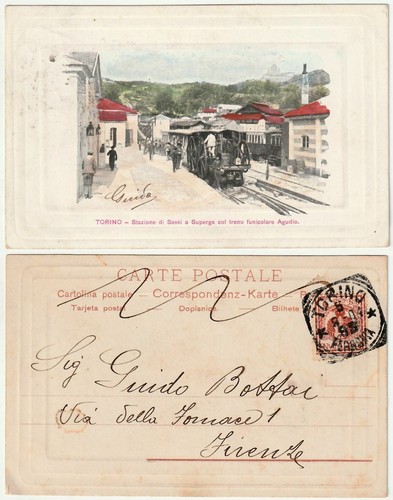 Guido
TORINO – Stazione di Sassi a Superga col treno funicolare Agudio.
CARTE POSTALE
Cartolina postale — Correspondenz-Karte —
Tarjeta postal — Dopisnice. — Bilhete
TORINO
FERROVIA
Sig Guido Bottai
Via della Fornace 1
Firenze